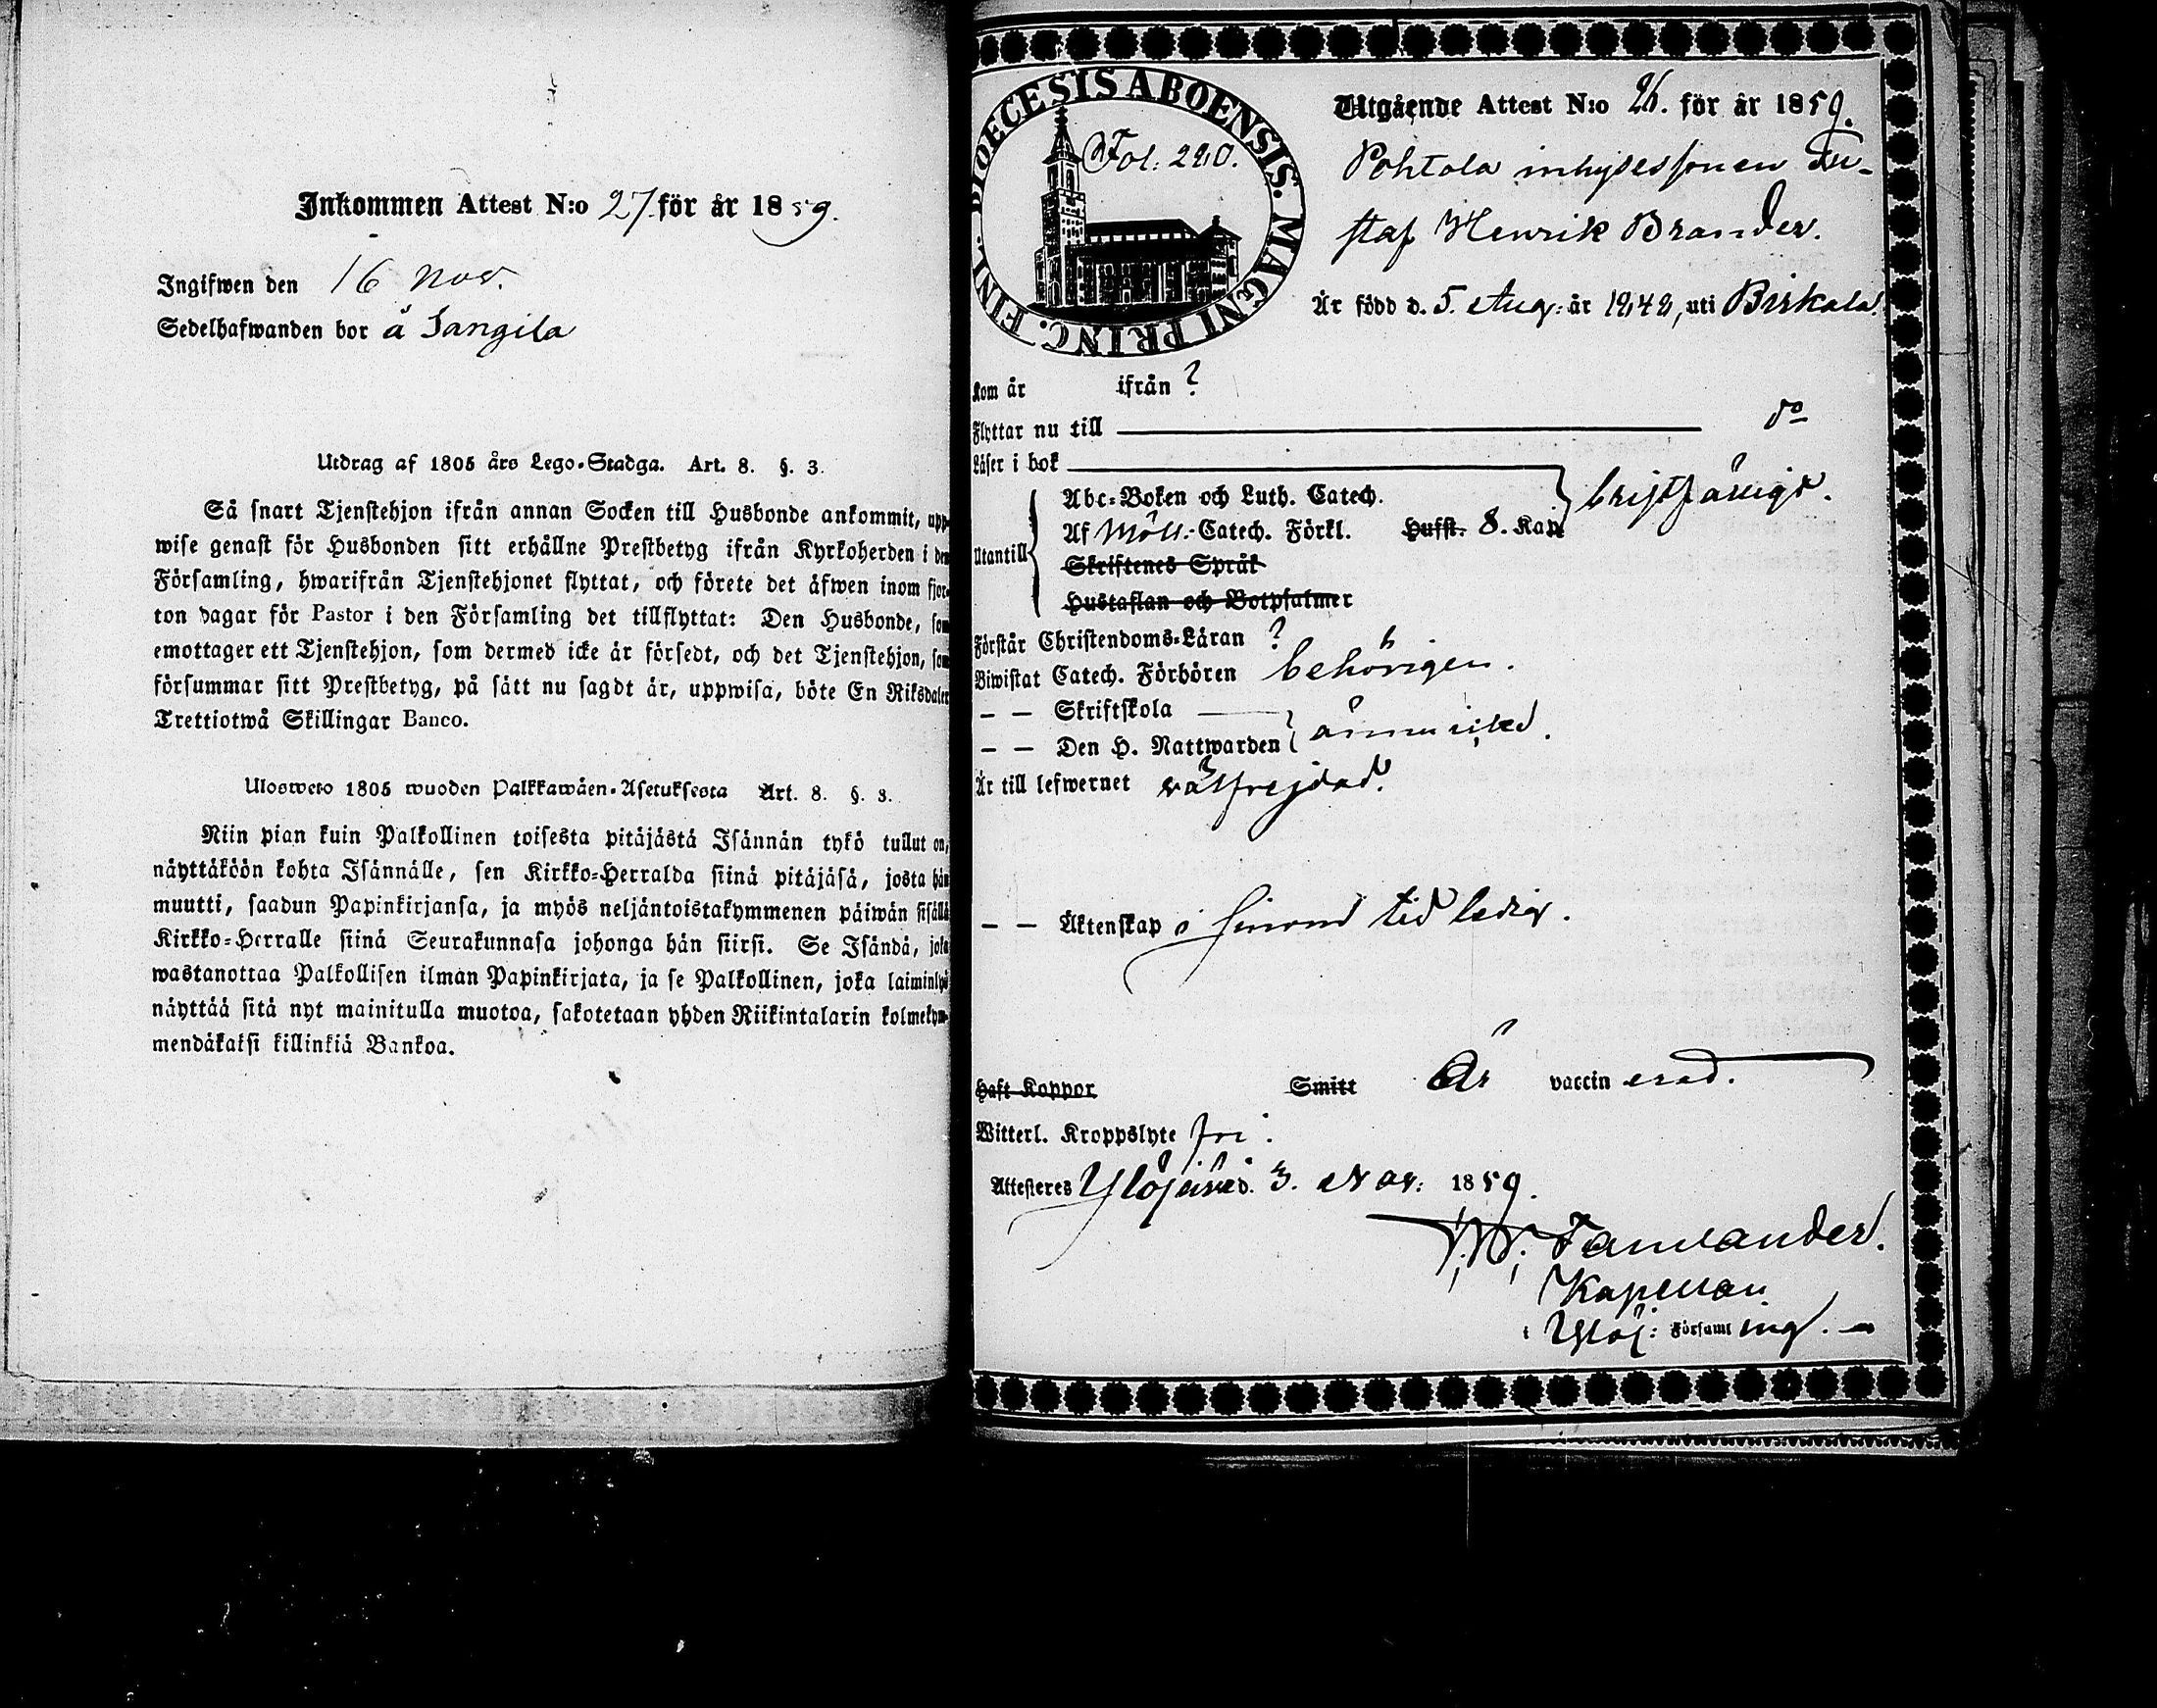 Inkommen Attest N:o 27. för år 1859.
Ingifwen den 16 Nov.
Sedelhafwanden bor å Sangila
Utdrag af 1805 års Lego-Stadga. Art. 8. §. 3.
Så snart Tjenstehjon ifrån annan Socken till Husbonde ankommit, upp-
wise genast för Husbonden sitt erhållne Prestbetyg ifrån Kyrkoherden i den
Församling, hwarifrån Tjenstehjonet flyttat, och förete det äfwen inom fjor-
ton dagar för Pastor i den Församling det tillflyttat: Den Husbonde, som
emottager ett Tjenstehjon, som dermed icke är försedt, och det Tjenstehjon, som
försummar sitt Prestbetyg, på sätt nu sagdt är, uppwisa, böte En Riksdaler
Trettiotwå Skillingar Banco.
Ulosweto 1805 wuoden Palkkawäen-Asetuksesta Art. 8. §. 3.
Niin pian kuin Palkollinen toisesta pitäjästä Isännän tykö tullut on,
näyttäköön kohta Isännälle, sen Kirkko-Herralda siinä pitäjäsä, josta hän
muutti, saadun Papinkirjansa, ja myös neljäntoistakymmenen päiwän sisällä
Kirkko-Herralle siinä Seurakunnasa johonga hän siirsi. Se Isändä, joka
wastanottaa Palkollisen ilman Papinkirjata, ja se Palkollinen, joka laiminlyö
näyttää sitä nyt mainitulla muotoa, sakotetaan yhden Riikintalarin kolmekym-
mendäkaksi killinkiä Bankoa.
DIOECESIS ABOENSIS. MAGNI PRINC. FINL.
Fol. 220.
Utgående Attest N:o 26. för år 1859.
Pohtola inhysessonen Gu-
staf Henrik Brander.
Är född d. 5. Aug: år 1842, uti Birkala.
Kom år ifrån ?
Flyttar nu till do
Läser i bok
Utantill
Abc-Boken och Luth. Catech.
Af Möll:-Catech. Förkl. Hufst. 8. Kap
bristfälligt.
Skriftenes Språk
Hustaflan och Botpsalmer
Förstår Christendoms-Läran ?
Biwistat Catech. Förhören behörigen.
– – Skriftskola
– – Den H. Nattwarden
ännu icke.
Är till lefwernet välfrejdad.
– – Äktenskap i sinom tid ledig.
Haft Koppor Smitt Är vaccinerad.
Witterl. Kroppslyte fri.
Attesteres Ylöjärvi d. 3. Nov: 1859.
Kapellan
i Ylöj: Församling.